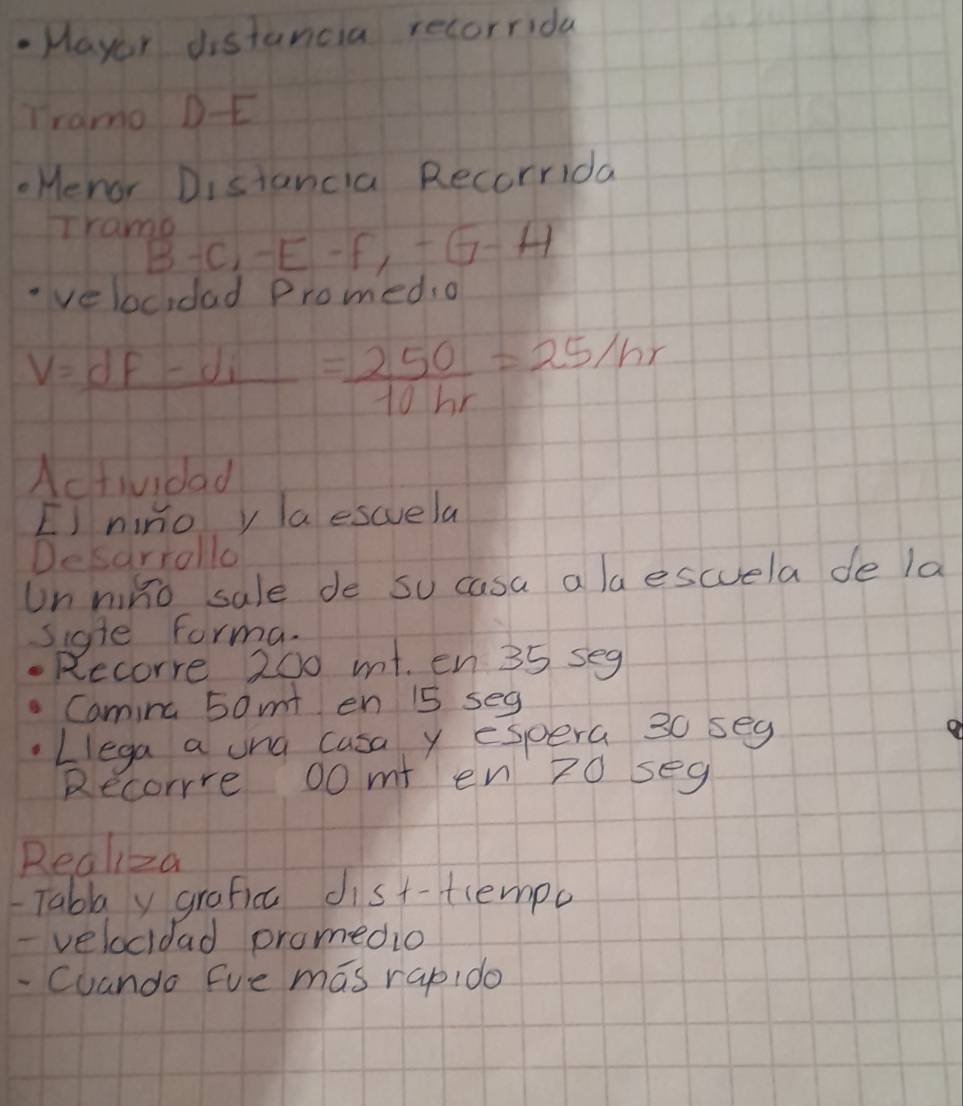 • Mayor distancia recorrida
Tramo D-E
• Menor Distancia Recorrida
Tramo
B-C, -E-F, -G-H
• velocidad Promedio
V= df - di = 250 = 25/hr
10 hr
Actividad
El niño y la escuela
Desarrollo
Un niño sale de su casa a la escuela de la
sigte forma.
• Recorre 200 mt. en 35 seg
• Camina 50mt en 15 seg
• Llega a una casa y espera 30 seg
Recorrre 00 mt en 20 seg
Realiza
- Tabla y grafica dist-tiempo
- velocidad promedio
- Cuando fue más rapido